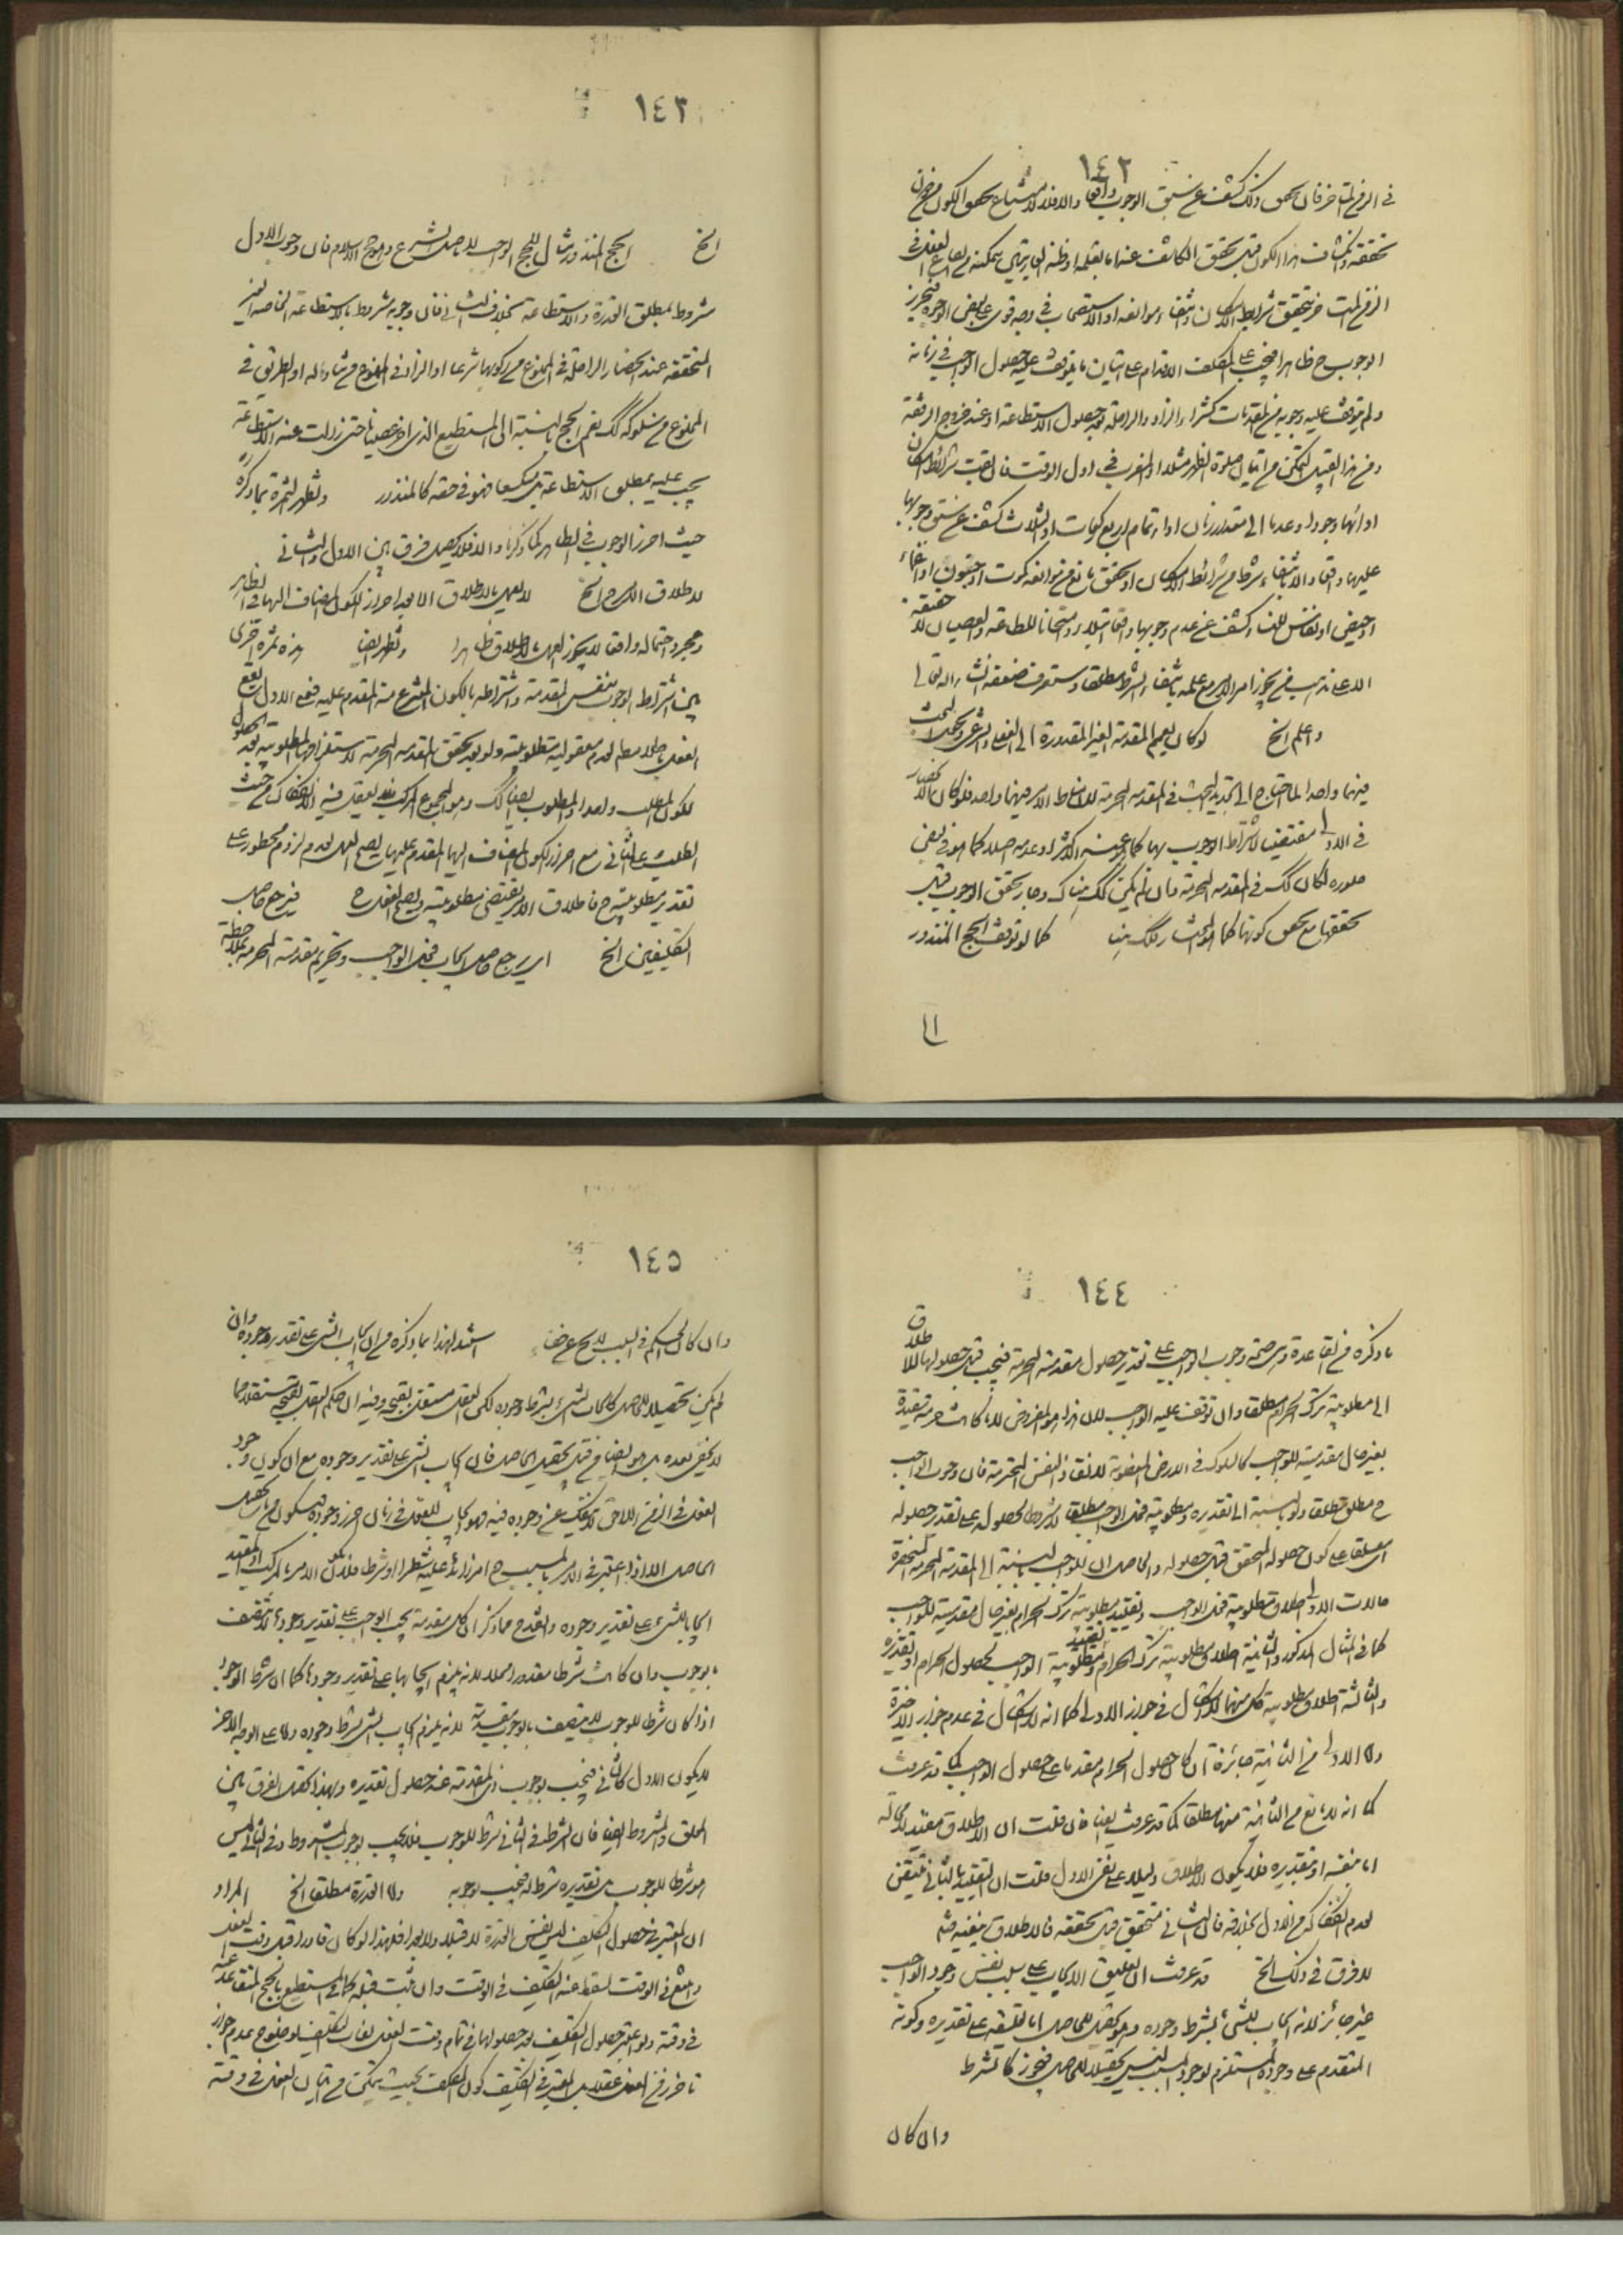 ١٤٢
في الزمن المتاخر فان تحقق ذلك كشف عن سبق الوجوب واقعا والا فلا لامتناع تحقق الكون من دون
تحققه وانكشاف هذا الكون قبل تحقق الكاشف عنه اما بعلمه او ظنه
الزمن المتاخر بتحقق شرايط الامكان وانتفاء موانعه او الاستصحاب في وجه قوى على بعض الوجوه فيحرز
الوجوب ح ظاهرا فيجب على المكلف الاقدام على اتيان ما يتوقف عليه حصول الواجب في زمانه
ولم يتوقف عليه وجوبه من المقدمات كشراء الزاد والراحلة بعد حصول الاستطاعة او عند خروج الرفقة
ومن هذا القبيل التمكن من اتيان صلوة الظهر مثلا او المغرب في اول الوقت فان بقيت شرائط امكان
ادائها وجودا وعدما الى مقدار زمان اداء تمام اربع ركعات او الثلاث كشف عن سبق وجوبها
عليها واقعا والا بانتفاء شرط من شرائط الامكان او تحقق مانع من موانعه كموت او جنون او اغماء
او حيض او نفاس للنساء كشف عن عدم وجوبها واقعا ابتلاء وامتحانا للطاعة والعصيان لا حقيقة
الا على مذهب من يجوز امر الامر مع علمه بانتفاء الشرط مطلقا وستعرف ضعفه انشاء الله تعالى
واعلم الخ لو كان يعمم المقدمة الغير المقدورة الى العقلي والشرعي وجعل البحث
فيهما واحدا لما احتاج الى تجديد البحث في المقدمة المحرمة لان مناط الامر فيهما واحد فلو كان الانحصار
في الاول مقتضيا لاشتراط الوجوب بها كما عن الاكثر او عدمه اصلا كما هو في بعض
صوره لكان كك في المقدمة المحرمة وان لم يكن كك هناك وجاز تحقق الوجوب قبل
تحققها مع تحقق كونها كما هو المختار فكك هنا كما لو توقف الحج المنذور
الى
١٤٣
الخ الحج المنذور مثال للحج الواجب لا باصل الشرع وهو حج الاسلام فان وجوب الاول
مشروط بمطلق القدرة والاستطاعة بخلاف الثاني فان وجوبه مشروط بالاستطاعة الخاصة الغير
المتحققة عند انحصار الراحلة في الممنوع من ركوبها شرعا او الزاد في الممنوع من تناوله او الطريق في
الممنوع من سلوكه كك نعم الحج بالنسبة الى المستطيع الذي اخر عصيانا حتى زالت عنه الاستطاعة
يجب عليه بمطلق الاستطاعة فهو في حقه كالمنذور وتظهر الثمرة بما ذكره
حيث احرز الوجوب في الظاهر كما ذكرنا والا فلا يحصل فرق بين الاول والثاني
لاطلاق الامر ح الخ لا يعمل بالاطلاق الا بعد احراز الكون المضاف اليها في الظاهر
ومجرد احتماله واقعا لا يجوز العمل بالاطلاق ظاهرا وتظهر ايضا هذه ثمرة اخرى
بين اشتراط الوجوب بنفس المقدمة واشتراطه بالكون المنتزع منه المقدم عليه فعلى الاول يقع
الفعل باطلا مطلقا لعدم معقولية مطلوبيته ولو بعد تحقق المقدمة المحرمة
لكون المطلب واحدا والمطلوب ايضا كك وهو المجموع المركب
الطلب وعلى الثاني مع احراز الكون المضاف اليها المقدم عليها يصح العمل لعدم لزوم محظور على
تقدير مطلوبيته ح فاطلاق الامر يقتضي مطلوبيته ويصح الفعل ح فيرجع حاصل
التكليفين الخ اى يرجع حاصل ايجاب فعل الواجب وتحريم مقدمته المحرمة بملاحظة
١٤٤
ما ذكره من القاعدة من صحة وجوب الواجب على تقدير حصول مقدمته المحرمة فيجب قبل حصولها لاطلاق
الى مطلوبية ترك الحرام مطلقا وان توقف عليه الواجب لان هذا هو المفروض لا ما كانت حرمته مقيدة
بغير حال مقدميته للواجب كالسلوك في الارض المغصوبة لانقاذ النفس المحترمة فان وجوب الواجب
ح مطلق مطلقا ولو بالنسبة الى تقديره ومطلوبية فعل الواجب مطلقا لا مشروطا بحصوله بل على تقدير حصوله
اى معلقا على كون حصوله المتحقق قبل حصوله والحاصل ان للواجب بالنسبة الى المقدمة المحرمة المنحصرة
حالات الاولى اطلاق مطلوبية فعل الواجب وتقييد مطلوبية ترك الحرام بغير حال مقدميته للواجب
كما في المثال المذكور والثانية اطلاق مطلوبية ترك الحرام وتقييد مطلوبية الواجب بحصول الحرام او تقديره
والثالثة اطلاق مطلوبية كل منهما لا اشكال في جواز الاولى كما انه لا اشكال في عدم جواز الاخيرة
واما الاولى من الثانية جائزة ان كان حصول الحرام مقدما على حصول الواجب كما قد عرفت
كما انه لا مانع من الثانية منهما مطلقا كما قد عرفت ايضا فان قلت ان الاطلاق مقيد لا محالة
اما بنفسه او بتقديره فلا يكون الاطلاق دليلا على نفى الاول قلت ان التقييد بالثاني متيقن
لعدم انفكاكه من الاول بخلافه فان الثاني متحقق قبل تحققه فالاطلاق ينفيه فتم
لا فرق في ذلك الخ قد عرفت ان تعليق الايجاب على سبب نفس وجود الواجب
غير جائز لانه ايجاب للشئ بشرط وجوده وهو تحصيل للحاصل اما تعليقه على تقديره وكونه
المتقدم على وجوده المستلزم لوجود السبب ليس تحصيلا للحاصل فيجوز كالشرط
وان كان
١٤٥
وان كان الحكم في السبب لا يخ عن خفاء استدل لهذا بما ذكره من ان ايجاب الشئ على تقدير وجوده وان
لم يكن تحصيلا للحاصل كايجاب الشئ بشرط وجوده لكن العقل مستقل بقبحه وفيه ان حكم العقل بقبحه مستقلا مما
لا يخفى بعده بل هو ايضا من قبيل تحصيل الحاصل فان ايجاب الشئ على تقدير وجوده مع ان كون وجود
الفعل في الزمن اللاحق لا ينفك عن وجوده فيه فهو ايجاب للفعل في زمان احرز وجوده فيه فيكون من تحصيل
الحاصل الا اذا اعتبر في الامر بالسبب ح امر زائد عليه شطرا او شرطا فلا يكون الامر بالمركب او المقيد
ايجابا للشئ على تقدير وجوده وانقدح مما ذكر ان كل مقدمة يجب الواجب على تقدير وجودها لا تتصف
بالوجوب وان كانت شرطا مقدورا محللا لانه يلزم ايجابها على تقدير وجودها كما ان شرط الوجود
اذا كان شرطا للوجوب لا يتصف بالوجوب بتبعيته لانه يلزم ايجاب الشئ بشرط وجوده واما على الوجه الاخر
لا يكون الاول كالثاني فيجب بوجوب ذي المقدمة عند حصول تقديره وبهذا تحصل الفرق بين
المعلق والمشروط ايضا فان الشرط في الثاني شرط للوجوب فلا يجب بوجوب المشروط وفي الثاني ليس
هو شرطا للوجوب بل تقديره شرط له فيجب بوجوبه واما القدرة مطلقا الخ المراد
ان المعتبر في حصول التكليف ليس نفس القدرة لا قبلا ولا بعدا فلهذا لو كان قادرا قبل وقت الفعل
وامتنع في الوقت لسقط عنه التكليف في الوقت وان ثبت قبله كما في المستطيع بالحج المتقاعد عنه
في وقته ولو اعتبر حصول التكليف بعد حصولها في تمام وقت الفعل لفات التكليف لوضوح عدم جواز
تاخره عن الفعل عقلا بل المعتبر في التكليف كون المكلف بحيث يتمكن من اتيان الفعل في وقته